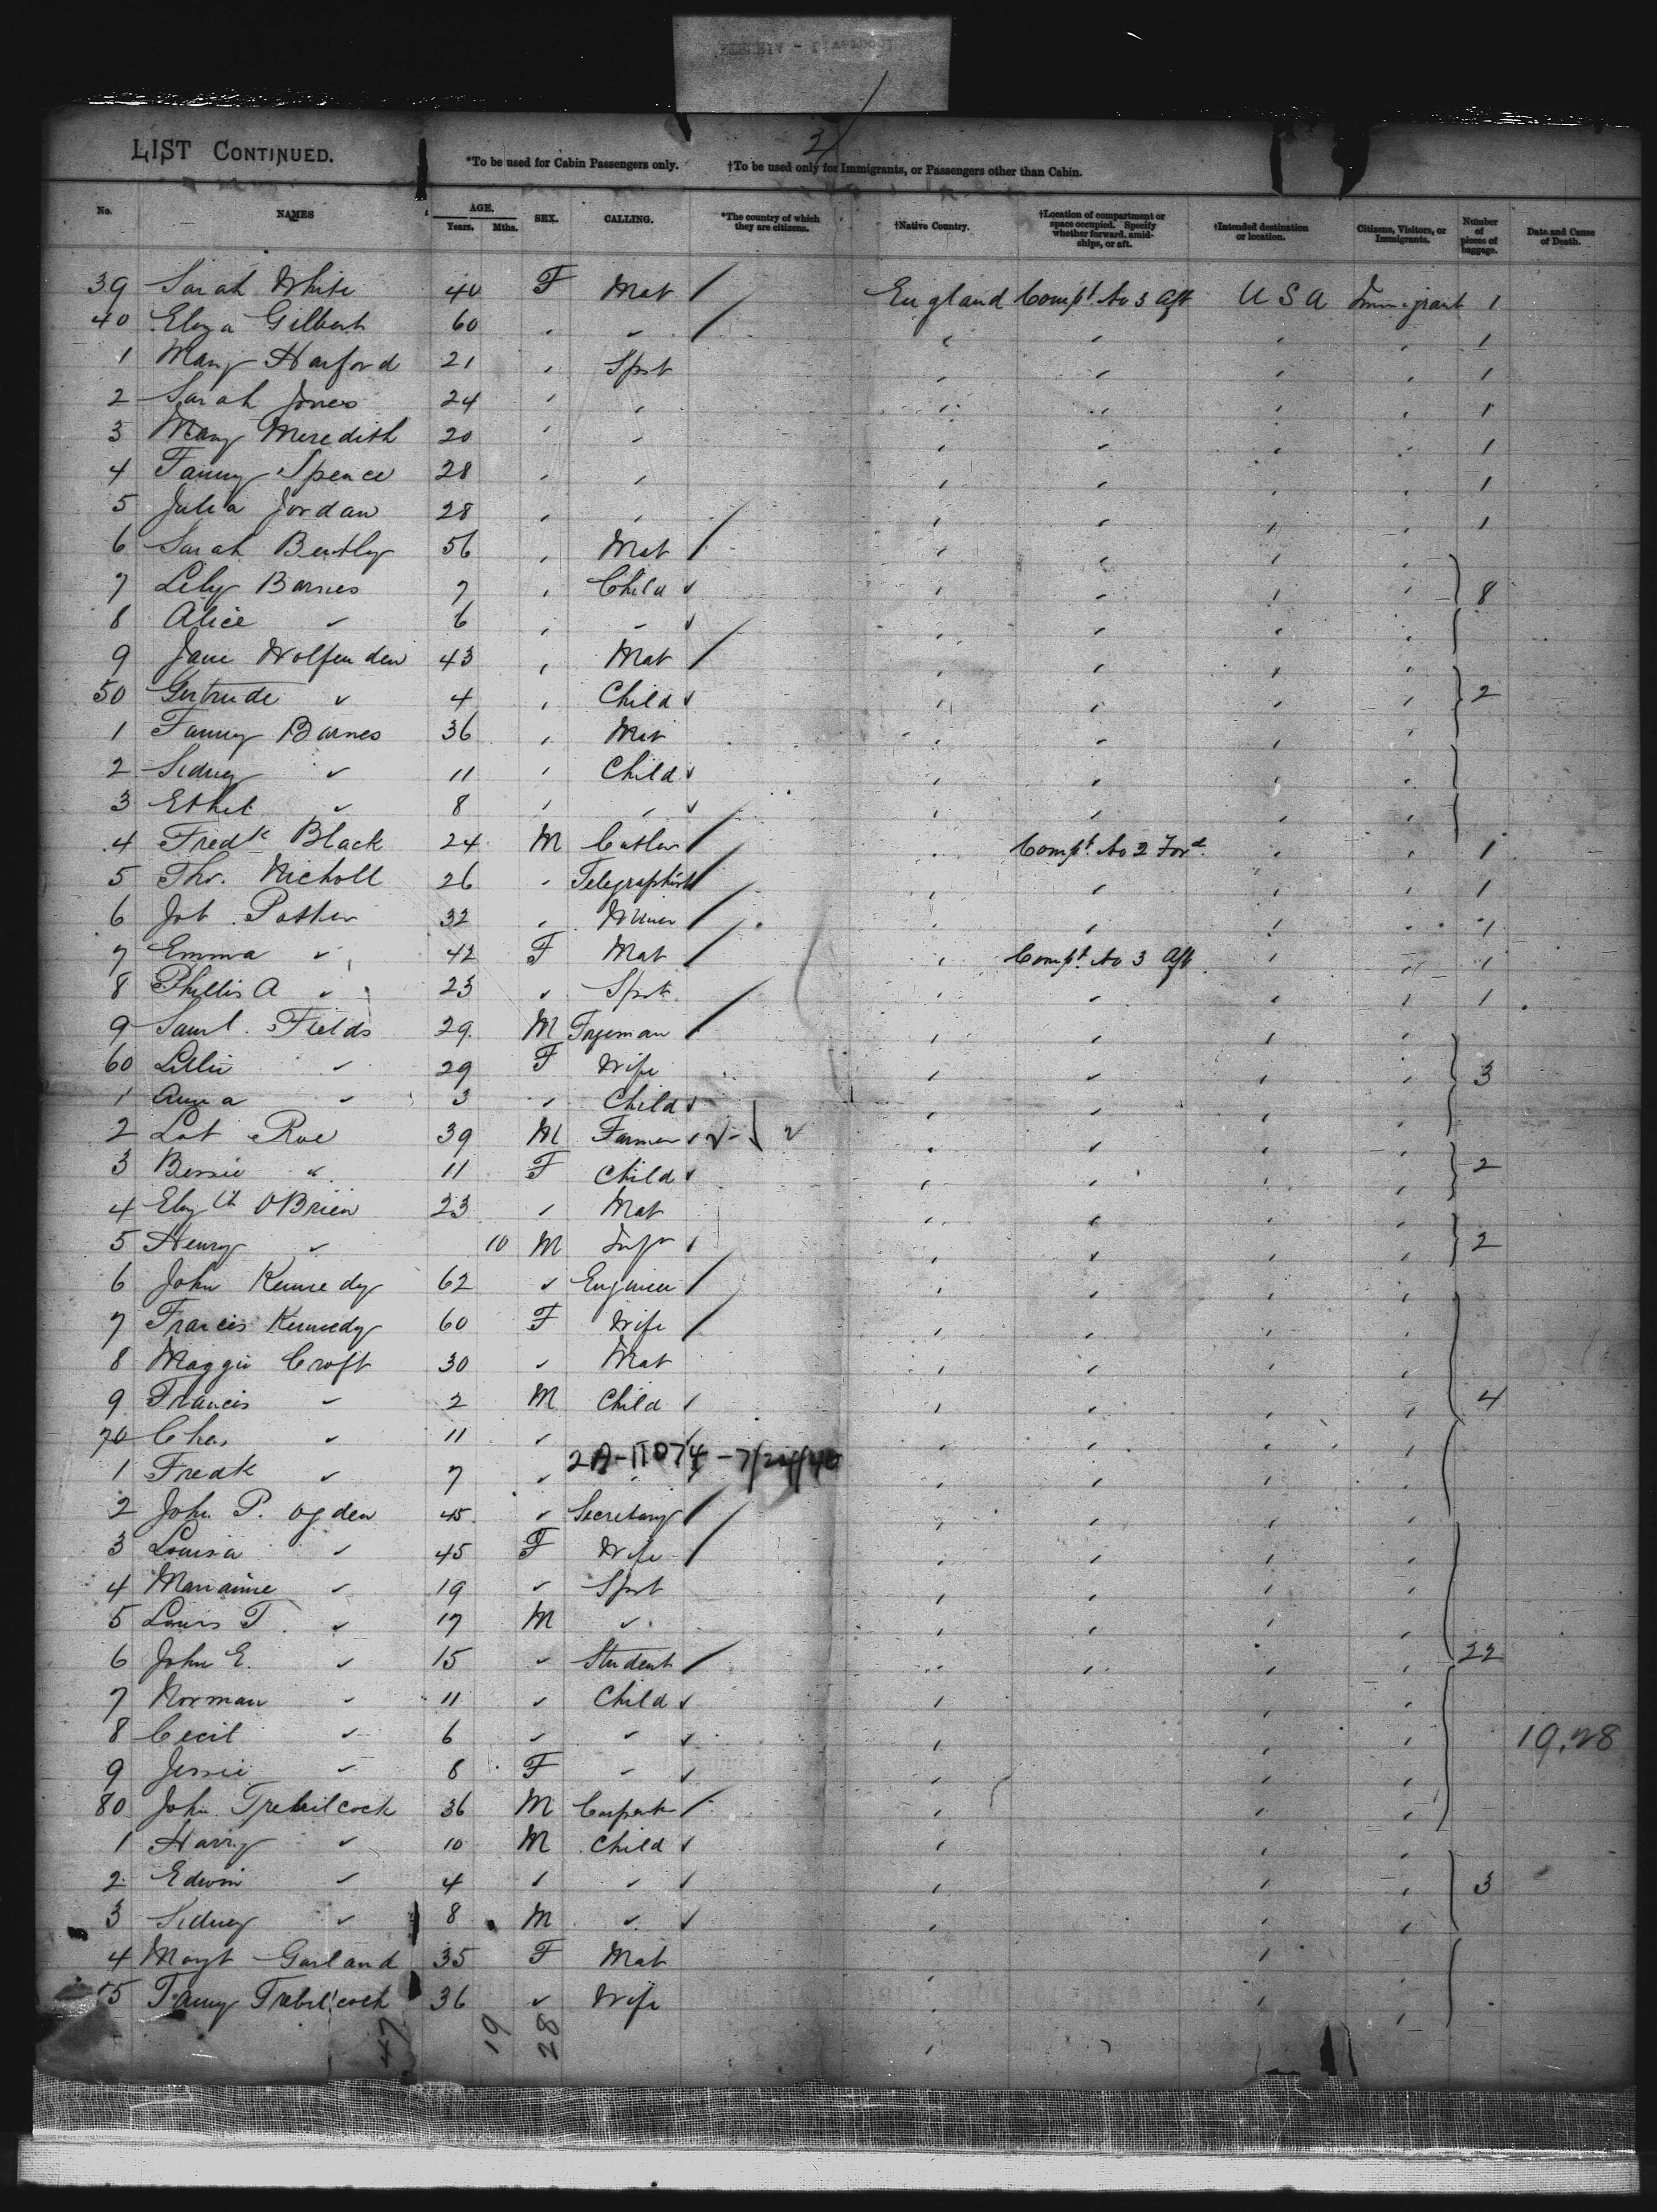 LIST CONTINUED.
*To be used for Cabin Passengers only. †To be used only for Immigrants, or Passengers other than Cabin.
2
No. NAMES AGE. Years. Mths. SEX. CALLING. *The country of which they are citizens. †Native Country. †Location of compartment or space occupied. Specify whether forward, amidships, or aft. †Intended destination or location. Citizens, Visitors, or Immigrants. Number of pieces of baggage. Date and Cause of Death.
39 Sarah White 40 F Mat England Compt. No 3 Aft U S A Immigrant 1
40 Eliza Gilbert 60 " " " " " " 1
1 Mary Harford 21 " Spst " " " " 1
2 Sarah Jones 24 " " " " " " 1
3 Mary Meredith 20 " " " " " " 1
4 Fanny Spence 28 " " " " " " 1
5 Julia Jordan 28 " " " " " " 1
6 Sarah Bently 56 " Mat " " " "
7 Lily Barnes 7 " Child " " " " 8
8 Alice " 6 " " " " " "
9 Jane Wolfenden 43 " Mat " " " "
50 Gertrude " 4 " Child " " " " 2
1 Fanny Barnes 36 " Mat " " " "
2 Sidney " 11 " Child " " " "
3 Ethel " 8 " " " " " "
4 Fredk Black 24 M Cutler " Compt. No 2 Ford. " " 1
5 Tho. Nicholl 26 " Telegraphist " " " " 1
6 Job 32 " Miner " " " " 1
7 Emma " 42 F Mat " Compt. No 3 Aft " " 1
8 Phillis A " 23 " Spst " " " " 1
9 Saml. Fields 29 M " " " "
60 Lillie " 29 F Wife " " " " 3
1 Anna " 3 " Child " " " "
2 Lot Roe 39 M Farmer " " " "
3 Bessie " 11 F Child " " " " 2
4 Elizth O'Brien 23 " Mat " " " "
5 Henry " 10 M Inft " " " " 2
6 John Kennedy 62 " Engineer " " " "
7 Francis Kennedy 60 F Wife " " " "
8 Maggie Croft 30 " Mat " " " "
9 Francis " 2 M Child " " " " 4
70 Chas " 11 " " " " "
2A-11074-7/24/40
1 Fredk " 7 " " " " " "
2 John P. Ogden 45 " Secretary " " " "
3 Louisa " 45 F Wife " " " "
4 Marianne " 19 " Spst " " " "
5 Louis T. " 17 M " " " " "
6 John E. " 15 " Student " " " " 22
7 Norman " 11 " Child " " "
8 Cecil " 6 " " " " " 19,28
9 Jessie " 8 F " " " "
80 John Trebilcock 36 M Carpentr " " "
1 Harry " 10 M Child " " "
2 Edwin " 4 " " " " " 3
3 Sidney " 8 M " " " "
4 Margt Garland 35 F Mat " " "
85 Fanny Trebilcock 36 " Wife " " "
47 19 28